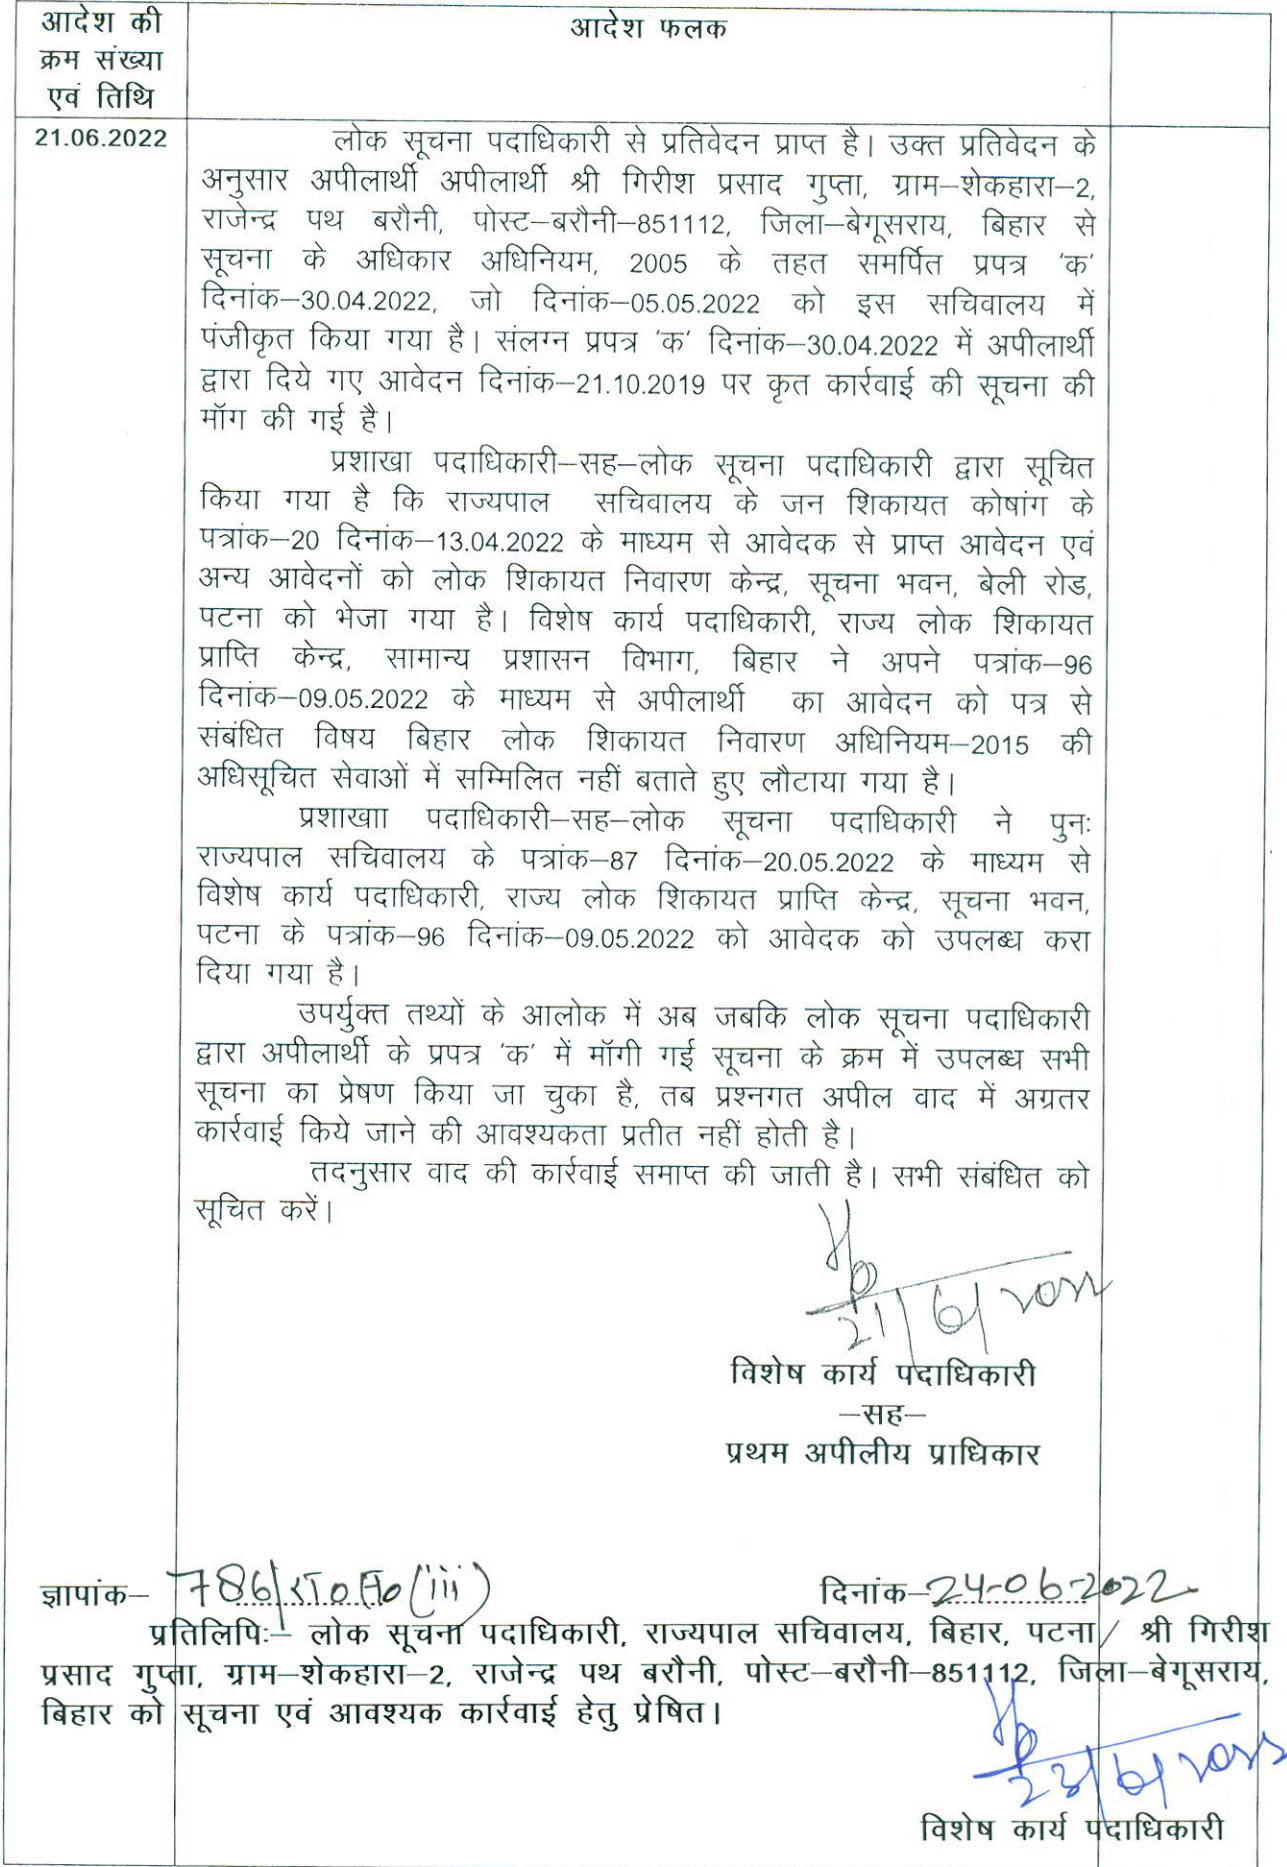 आदेश की
क्रम संख्या
एवं तिथि
आदेश फलक
21.06.2022
लोक सूचना पदाधिकारी से प्रतिवेदन प्राप्त है। उक्त प्रतिवेदन के
अनुसार अपीलार्थी अपीलार्थी श्री गिरीश प्रसाद गुप्ता, ग्राम–शेकहारा–2,
राजेन्द्र पथ बरौनी, पोस्ट–बरौनी–851112, जिला–बेगूसराय, बिहार से
सूचना के अधिकार अधिनियम, 2005 के तहत समर्पित प्रपत्र 'क'
दिनांक–30.04.2022, जो दिनांक–05.05.2022 को इस सचिवालय में
पंजीकृत किया गया है। संलग्न प्रपत्र 'क' दिनांक–30.04.2022 में अपीलार्थी
द्वारा दिये गए आवेदन दिनांक–21.10.2019 पर कृत कार्रवाई की सूचना की
मॉग की गई है।
प्रशाखा पदाधिकारी–सह–लोक सूचना पदाधिकारी द्वारा सूचित
किया गया है कि राज्यपाल सचिवालय के जन शिकायत कोषांग के
पत्रांक–20 दिनांक–13.04.2022 के माध्यम से आवेदक से प्राप्त आवेदन एवं
अन्य आवेदनों को लोक शिकायत निवारण केन्द्र, सूचना भवन, बेली रोड,
पटना को भेजा गया है। विशेष कार्य पदाधिकारी, राज्य लोक शिकायत
प्राप्ति केन्द्र, सामान्य प्रशासन विभाग, बिहार ने अपने पत्रांक–96
दिनांक–09.05.2022 के माध्यम से अपीलार्थी का आवेदन को पत्र से
संबंधित विषय बिहार लोक शिकायत निवारण अधिनियम–2015 की
अधिसूचित सेवाओं में सम्मिलित नहीं बताते हुए लौटाया गया है।
प्रशाखाा पदाधिकारी–सह–लोक सूचना पदाधिकारी ने पुनः
राज्यपाल सचिवालय के पत्रांक–87 दिनांक–20.05.2022 के माध्यम से
विशेष कार्य पदाधिकारी, राज्य लोक शिकायत प्राप्ति केन्द्र, सूचना भवन,
पटना के पत्रांक–96 दिनांक–09.05.2022 को आवेदक को उपलब्ध करा
दिया गया है।
उपर्युक्त तथ्यों के आलोक में अब जबकि लोक सूचना पदाधिकारी
द्वारा अपीलार्थी के प्रपत्र 'क' में मॉगी गई सूचना के क्रम में उपलब्ध सभी
सूचना का प्रेषण किया जा चुका है, तब प्रश्नगत अपील वाद में अग्रतर
कार्रवाई किये जाने की आवश्यकता प्रतीत नहीं होती है।
तदनुसार वाद की कार्रवाई समाप्त की जाती है। सभी संबंधित को
सूचित करें।
विशेष कार्य पदाधिकारी
–सह–
प्रथम अपीलीय प्राधिकार
ज्ञापांक– 786/रा०स०(iii) दिनांक–24-06-2022
प्रतिलिपिः– लोक सूचना पदाधिकारी, राज्यपाल सचिवालय, बिहार, पटना/ श्री गिरीश
प्रसाद गुप्ता, ग्राम–शेकहारा–2, राजेन्द्र पथ बरौनी, पोस्ट–बरौनी–851112, जिला–बेगूसराय,
बिहार को सूचना एवं आवश्यक कार्रवाई हेतु प्रेषित।
विशेष कार्य पदाधिकारी